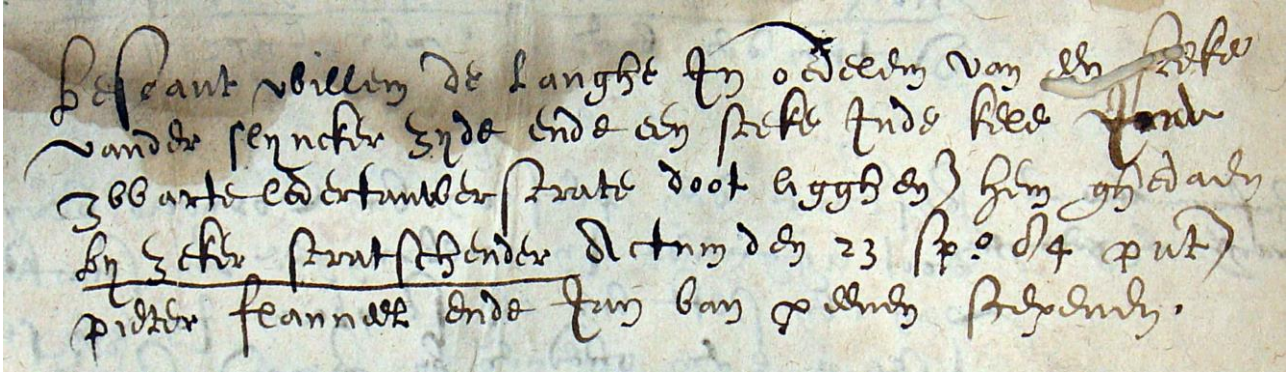 Bescant willem de langhe In oedelem van een steke
vander slyncker zyde ende een steke Inde kele Inde
zwarte ledertauwer strate doot ligghen hem ghedaen
by zeker stratschender Actum den 23 sp.e 84 put
pieter flanneel ende Jan van peenen scepenen.